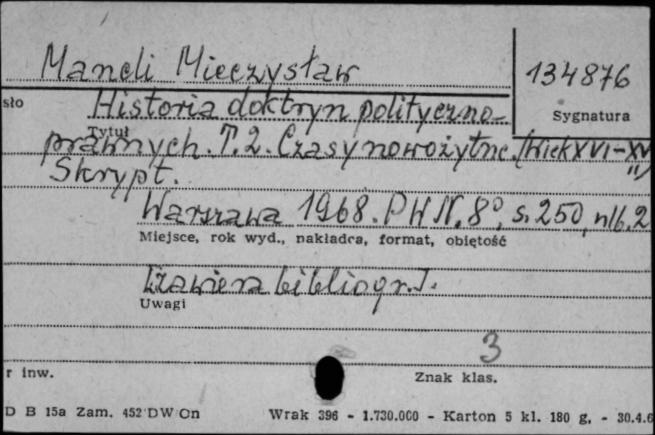 Maneli Mieczysław
134876
sło
Historia doktryn polityczno-
Sygnatura
Tytuł
prawnych. T. 2. Czasy nowożytne. (Wiek XVI-XV
II)
Skrypt.
Warszawa 1968. PWN, 8°, s. 250, nlb. 2
Miejsce, rok wyd., nakładca, format, objętość
Zawiera bibliogr.
Uwagi
3
r inw.
Znak klas.
D B 15a Zam. 452 DW On Wrak 396 - 1.730.000 - Karton 5 kl. 180 g. - 30.4.6